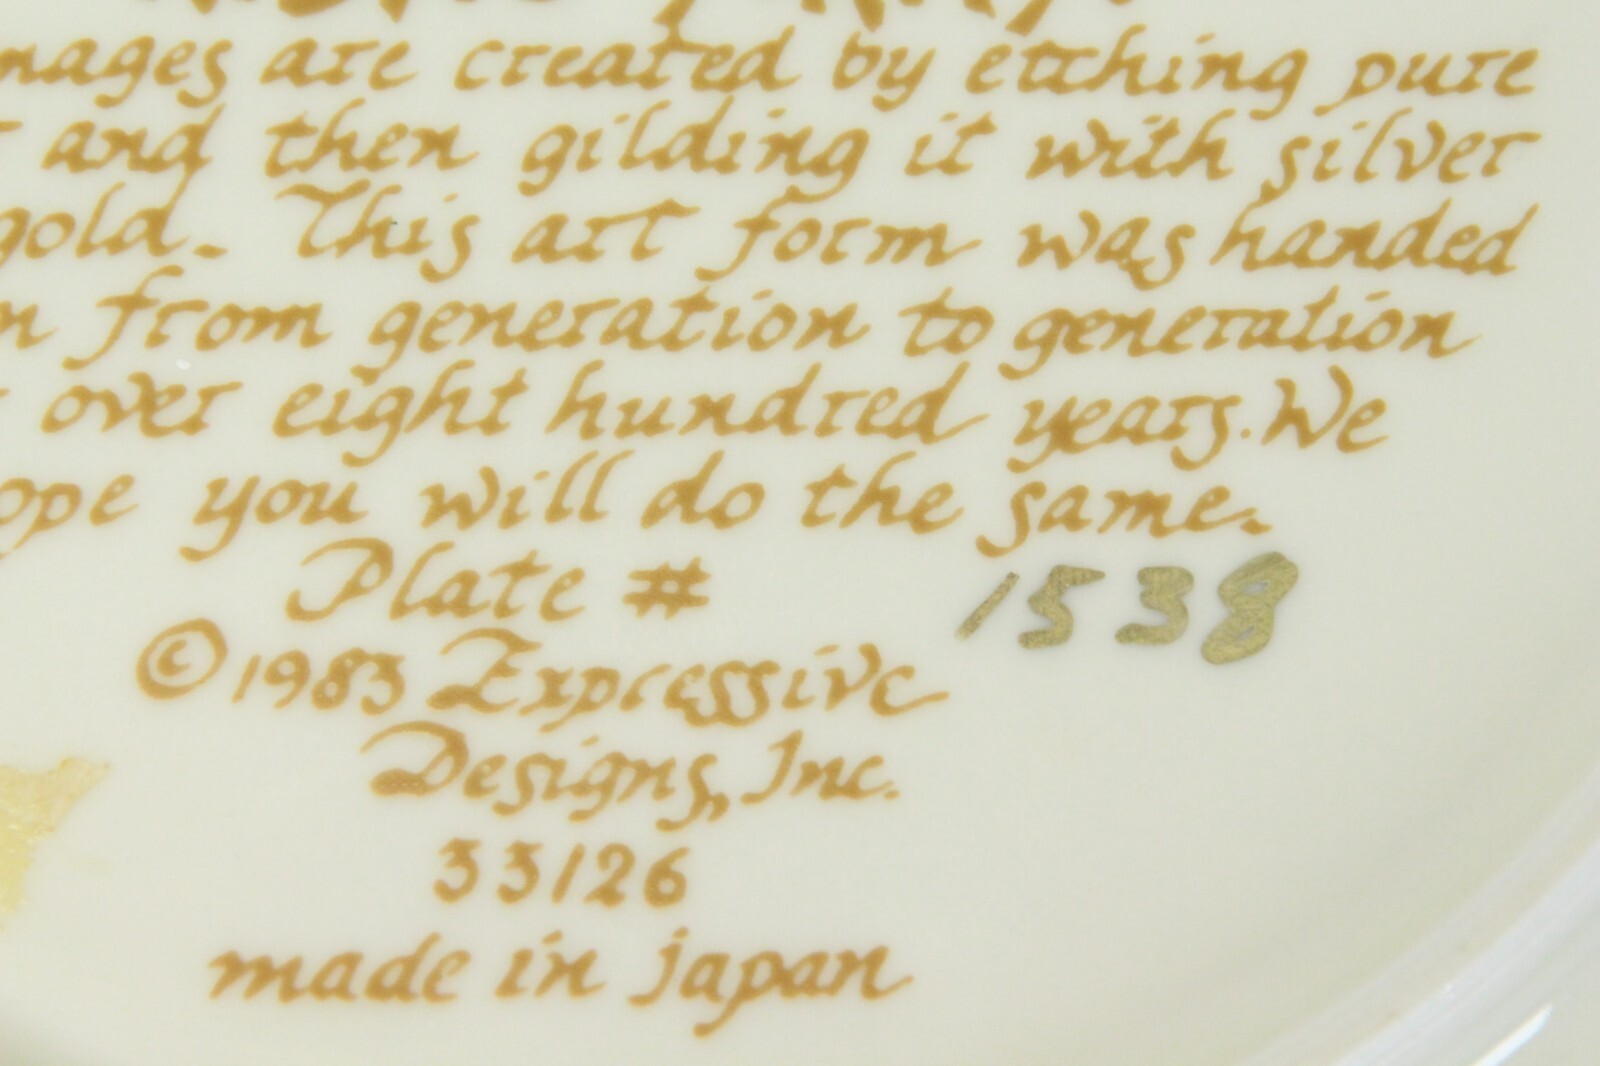 mages are created by etching pure
and then gilding it with silver
gold. This art form was handed
from generation to generation
over eight hundred years. We
ope you will do the same.
Plate # 1538
©1983 Expressive
Designs, Inc.
33126
made in japan